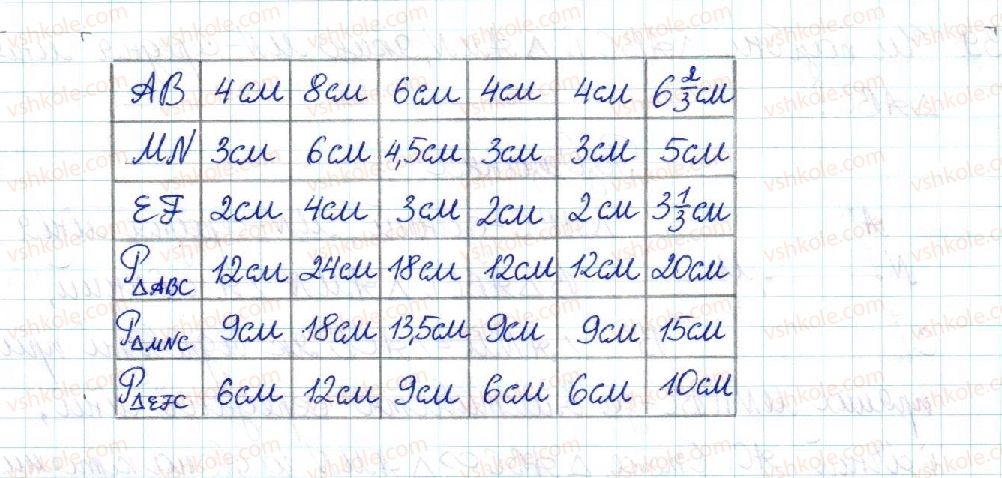 AB 4см 8см 6см 4см 4см 6 2/3 см
MN 3см 6см 4,5см 3см 3см 5см
EF 2см 4см 3см 2см 2см 3 1/3 см
P△ABC 12см 24см 18см 12см 12см 20см
P△MNC 9см 18см 13,5см 9см 9см 15см
P△EFC 6см 12см 9см 6см 6см 10см
vshkole.com